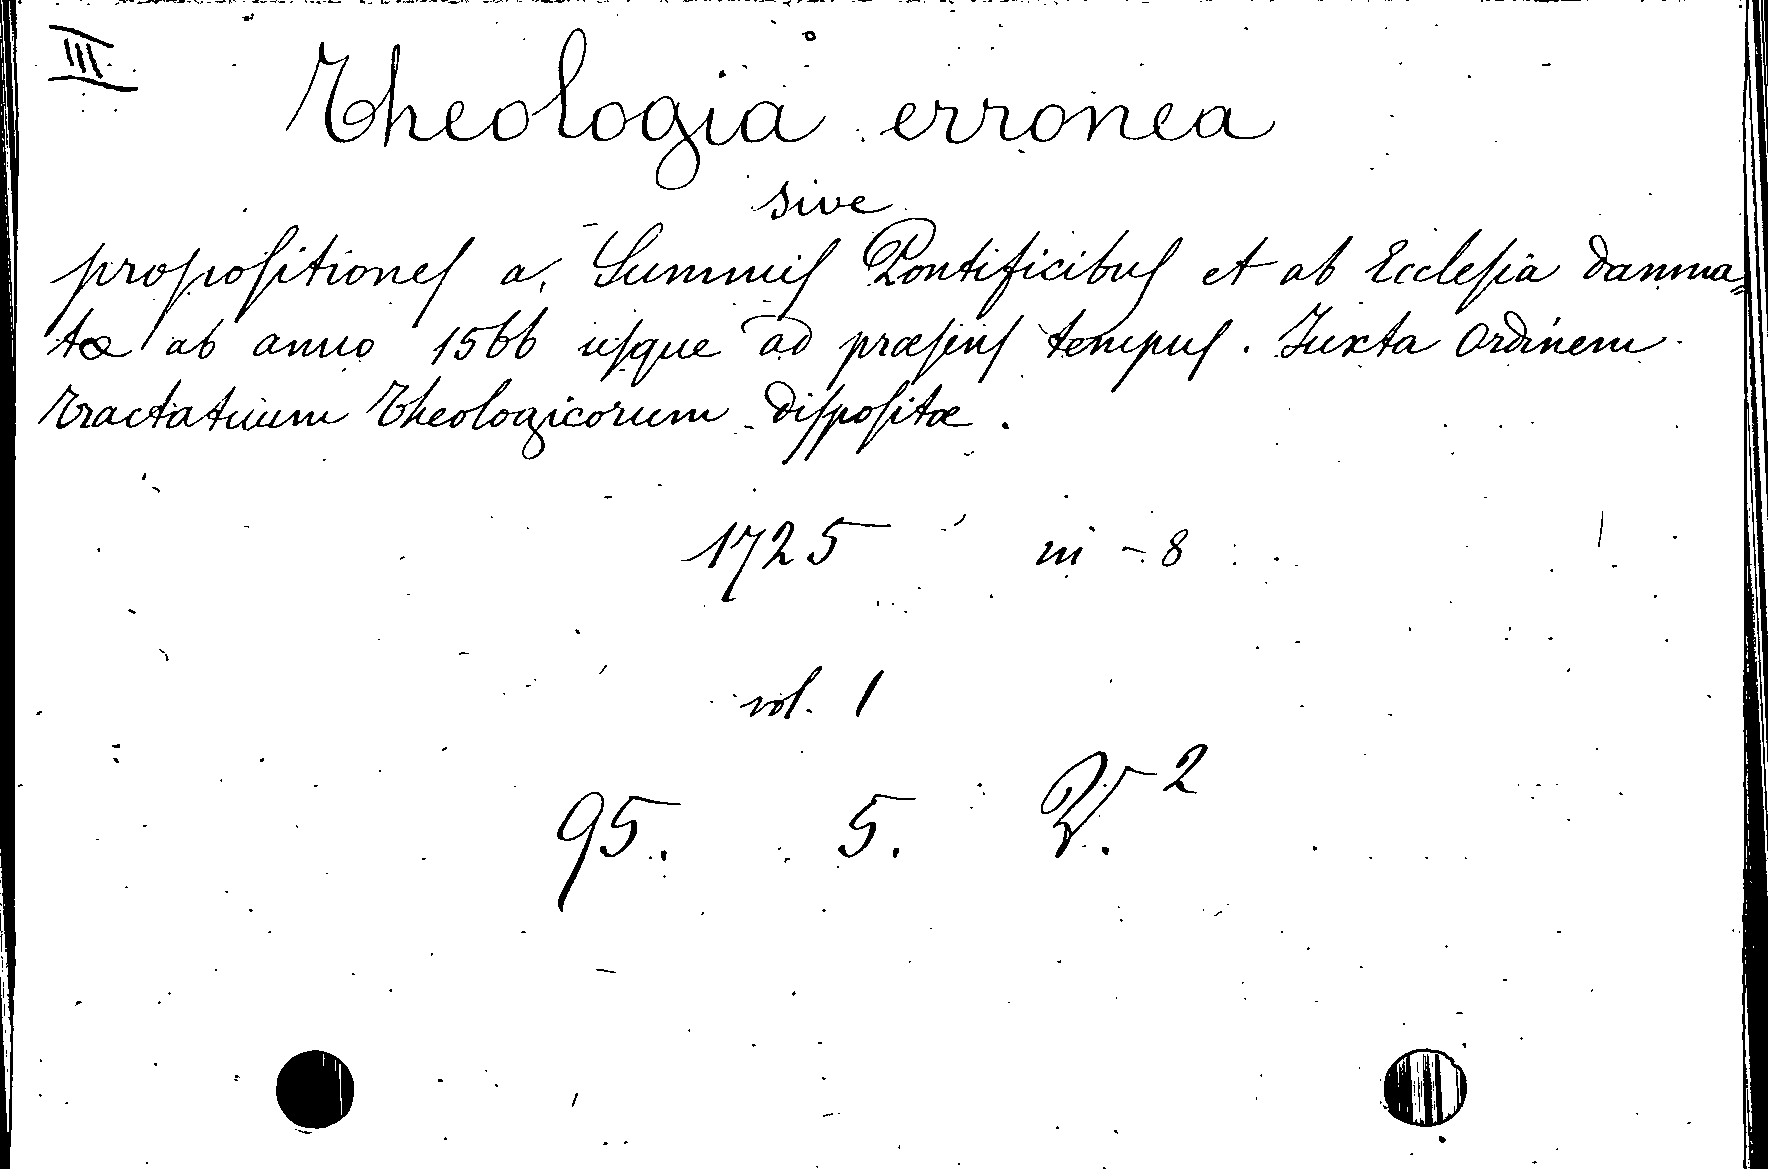 III
Theologia erronea
sive
propoſitioneſ a, Summiſ Pontificibuſ et ab Eccleſia damna„
tæ ab anno 1566 uſque ad præſenſ tempuſ. Juxta Ordinem
tractatuum theologicorum diſpoſitæ.
1725 in-8
vol. 1
95. 5.